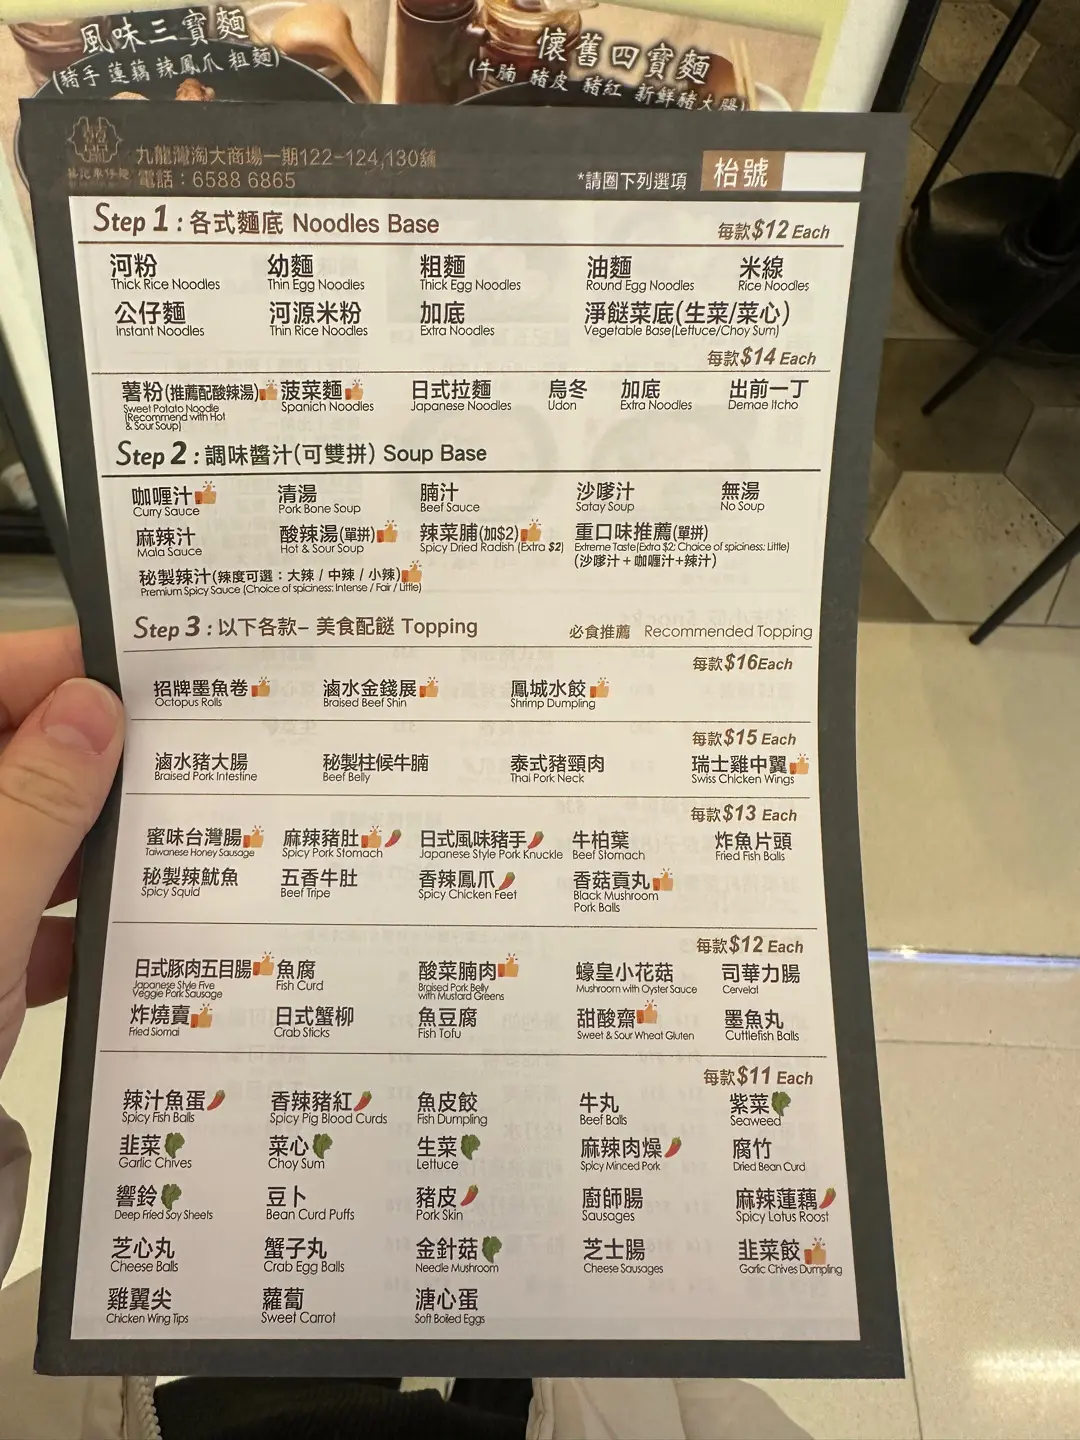 風味三寶麵
(豬手 蓮藕 辣鳳爪 粗麵)
懷舊四寶麵
(牛腩 豬皮 豬紅 新鮮豬大腸)
九龍灣淘大商場一期122-124,130舖
電話：6588 6865
*請圈下列選項 枱號
Step 1 : 各式麵底 Noodles Base
每款$12 Each
河粉 幼麵 粗麵 油麵 米線
Thick Rice Noodles Thin Egg Noodles Thick Egg Noodles Round Egg Noodles Rice Noodles
公仔麵 河源米粉 加底 淨餸菜底(生菜/菜心)
Instant Noodles Thin Rice Noodles Extra Noodles Vegetable Base(Lettuce/Choy Sum)
每款$14 Each
薯粉(推薦配酸辣湯) 菠菜麵 日式拉麵 烏冬 加底 出前一丁
Sweet Patato Noodle Spanich Noodles Japanese Noodles Udon Extra Noodles Demae Itcho
(Recommend with Hot
& Sour Soup)
Step 2 : 調味醬汁(可雙拼) Soup Base
咖喱汁 清湯 腩汁 沙嗲汁 無湯
Curry Sauce Pork Bone Soup Beef Sauce Satay Soup No Soup
麻辣汁 酸辣湯(單拼) 辣菜脯(加$2) 重口味推薦(單拼)
Mala Sauce Hot & Sour Soup Spicy Dried Radish (Extra $2) Extreme Taste(Extra $2; Choice of spiciness: Little)
(沙嗲汁＋咖喱汁+辣汁)
秘製辣汁(辣度可選：大辣 / 中辣 / 小辣)
Premium Spicy Sauce (Choice of spiciness: Intense / Fair / Little)
Step 3 : 以下各款– 美食配餸 Topping
必食推薦 Recommended Topping
每款$16Each
招牌墨魚卷 滷水金錢展 鳳城水餃
Octopus Rolls Braised Beef Shin Shrimp Dumpling
每款$15 Each
滷水豬大腸 秘製柱候牛腩 泰式豬頸肉 瑞士雞中翼
Braised Pork Intestine Beef Belly Thai Pork Neck Swiss Chicken Wings
每款$13 Each
蜜味台灣腸 麻辣豬肚 日式風味豬手 牛柏葉 炸魚片頭
Taiwanese Honey Sausage Spicy Pork Stomach Japanese Style Pork Knuckle Beef Stomach Fried Fish Balls
秘製辣魷魚 五香牛肚 香辣鳳爪 香菇貢丸
Spicy Squid Beef Tripe Spicy Chicken Feet Black Mushroom
Pork Balls
每款$12 Each
日式豚肉五目腸 魚腐 酸菜腩肉 蠔皇小花菇 司華力腸
Japanese Style Five Fish Curd Braised Pork Belly Mushroom with Oyster Sauce Cervelat
Veggie Pork Sausage with Mustard Greens
炸燒賣 日式蟹柳 魚豆腐 甜酸齋 墨魚丸
Fried Siomai Crab Sticks Fish Tofu Sweet & Sour Wheat Gluten Cuttlefish Balls
每款$11 Each
辣汁魚蛋 香辣豬紅 魚皮餃 牛丸 紫菜
Spicy Fish Balls Spicy Pig Blood Curds Fish Dumpling Beef Balls Seaweed
韭菜 菜心 生菜 麻辣肉燥 腐竹
Garlic Chives Choy Sum Lettuce Spicy Minced Pork Dried Bean Curd
響鈴 豆卜 豬皮 廚師腸 麻辣蓮藕
Deep Fried Soy Sheets Bean Curd Puffs Pork Skin Sausages Spicy Lotus Roost
芝心丸 蟹子丸 金針菇 芝士腸 韭菜餃
Cheese Balls Crab Egg Balls Needle Mushroom Cheese Sausages Garlic Chives Dumpling
雞翼尖 蘿蔔 溏心蛋
Chicken Wing Tips Sweet Carrot Soft Boiled Eggs